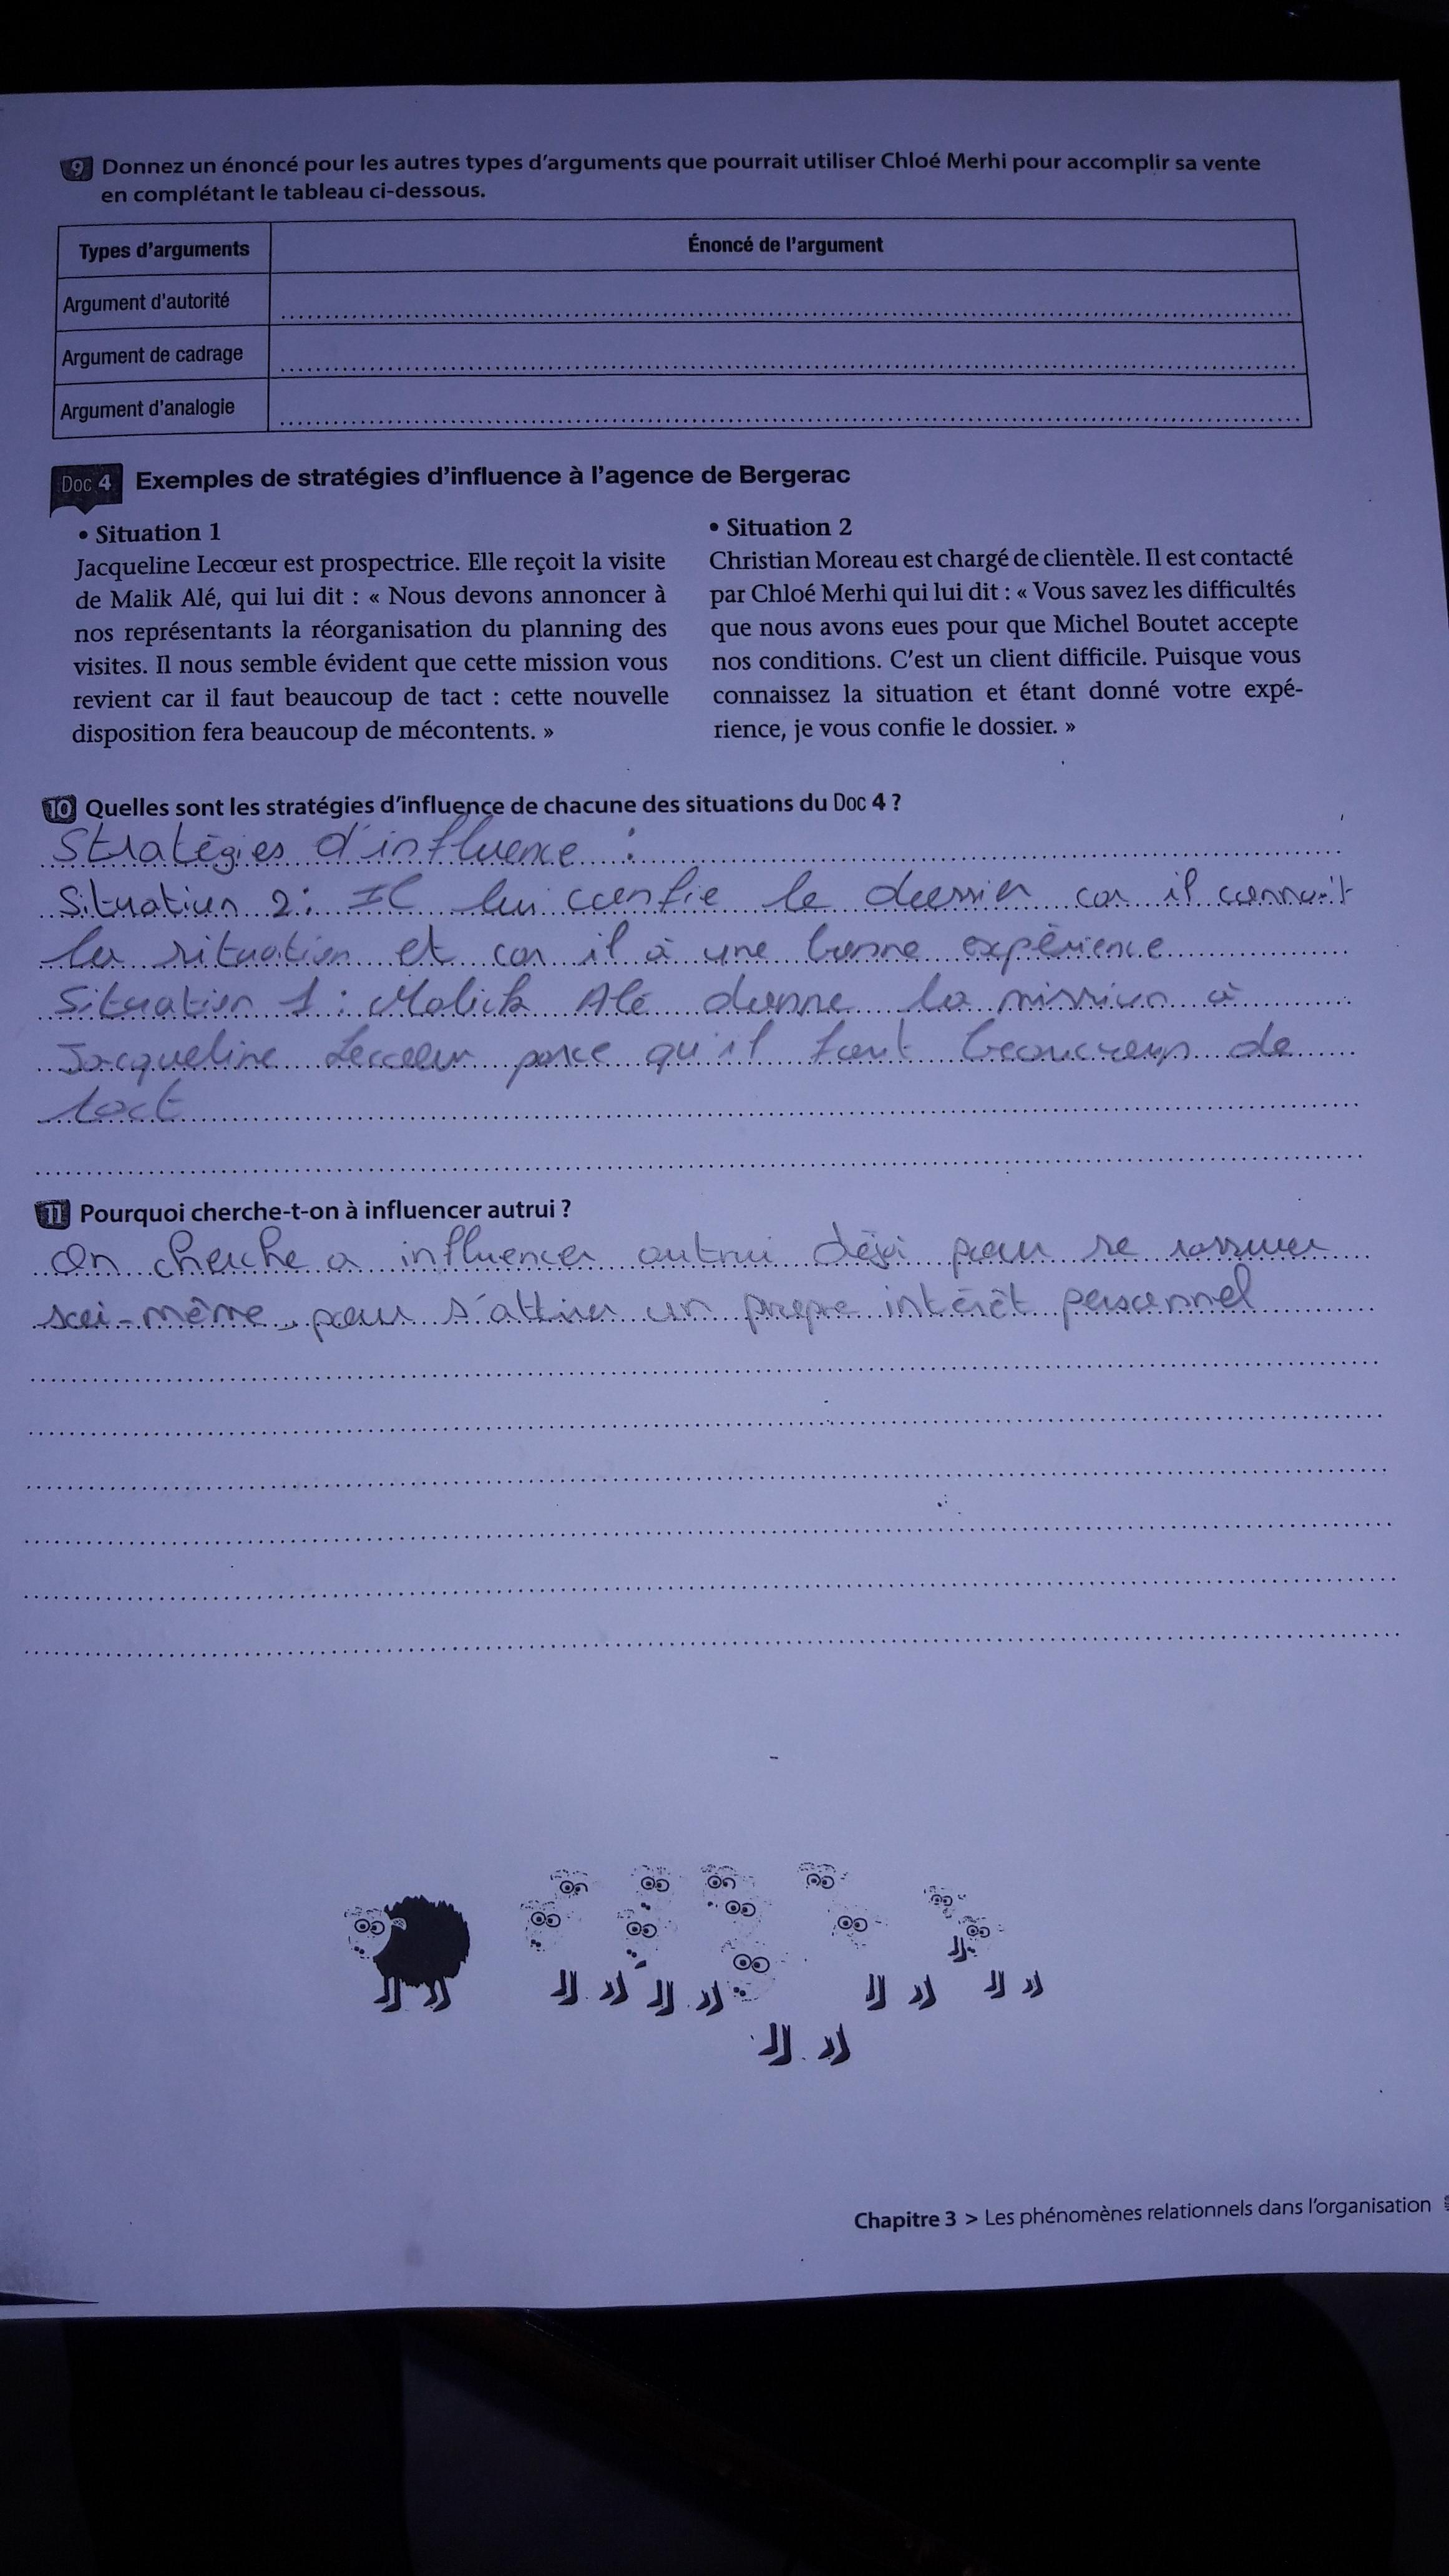 9 Donnez un énoncé pour les autres types d'arguments que pourrait utiliser Chloé Merhi pour accomplir sa vente
en complétant le tableau ci-dessous.
Types d'arguments
Énoncé de l'argument
Argument d'autorité
Argument de cadrage
Argument d'analogie
Doc 4 Exemples de stratégies d'influence à l'agence de Bergerac
• Situation 1
Jacqueline Lecœur est prospectrice. Elle reçoit la visite
de Malik Alé, qui lui dit : « Nous devons annoncer à
nos représentants la réorganisation du planning des
visites. Il nous semble évident que cette mission vous
revient car il faut beaucoup de tact : cette nouvelle
disposition fera beaucoup de mécontents. »
• Situation 2
Christian Moreau est chargé de clientèle. Il est contacté
par Chloé Merhi qui lui dit : « Vous savez les difficultés
que nous avons eues pour que Michel Boutet accepte
nos conditions. C'est un client difficile. Puisque vous
connaissez la situation et étant donné votre expé-
rience, je vous confie le dossier. »
10 Quelles sont les stratégies d'influence de chacune des situations du Doc 4 ?
Stratégies d'influence :
Situation 2 : Il lui confie le dossier car il connait
la situation et car il à une bonne expérience
Situation 1 : Malick Alé donne la mission à
Jacqueline Lecoeur parce qu'il faut beaucoup de
tact
11 Pourquoi cherche-t-on à influencer autrui ?
On cherche a influencer autrui déjà pour se rassurer
soi-même, pour s'attirer un propre intérêt personnel
Chapitre 3 > Les phénomènes relationnels dans l'organisation